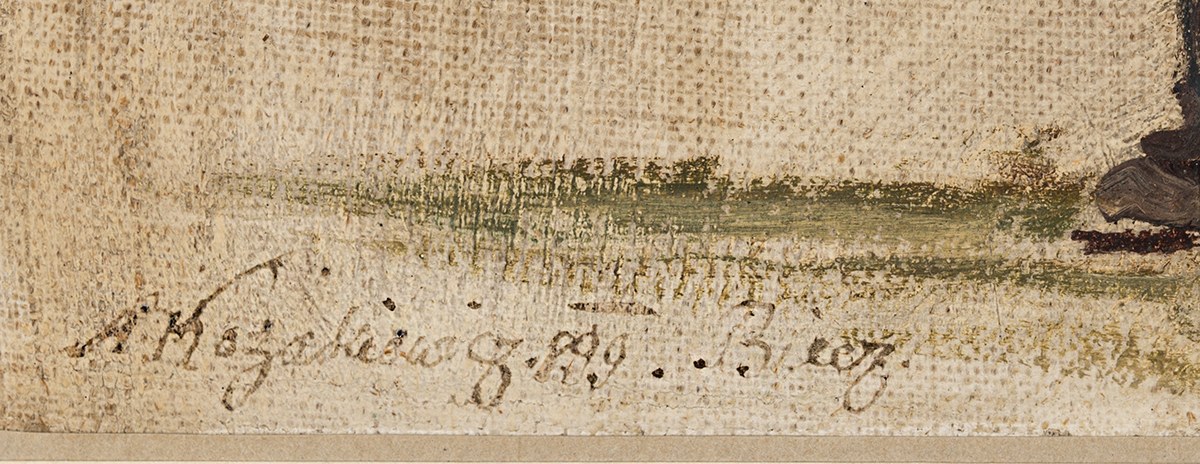 A. Kozakiewicz. 889. Biecz.